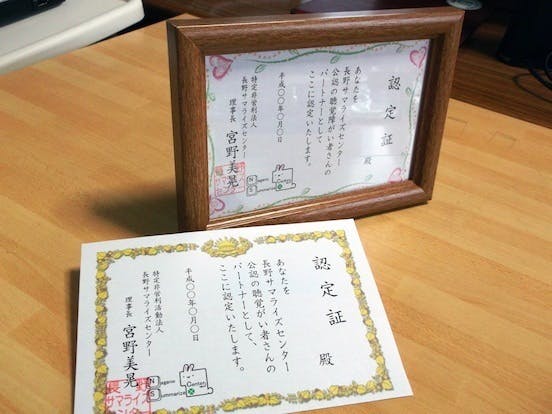 認定証
殿
あなたを
長野サマライズセンター
公認の聴覚障がい者さんの
パートナーとして
ここに認定いたします。
平成〇〇年〇月〇日
特定非営利活動法人
長野サマライズセンター
理事長 宮野美晃
Nagano
Summarize
Center
認定証
殿
あなたを
長野サマライズセンター
公認の聴覚がい者さんの
パートナーとして、
ここに認定いたします。
平成〇〇年〇月〇日
特定非営利活動法人
長野サマライズセンター
理事長 宮野美晃
Nagano
Summarize
Center